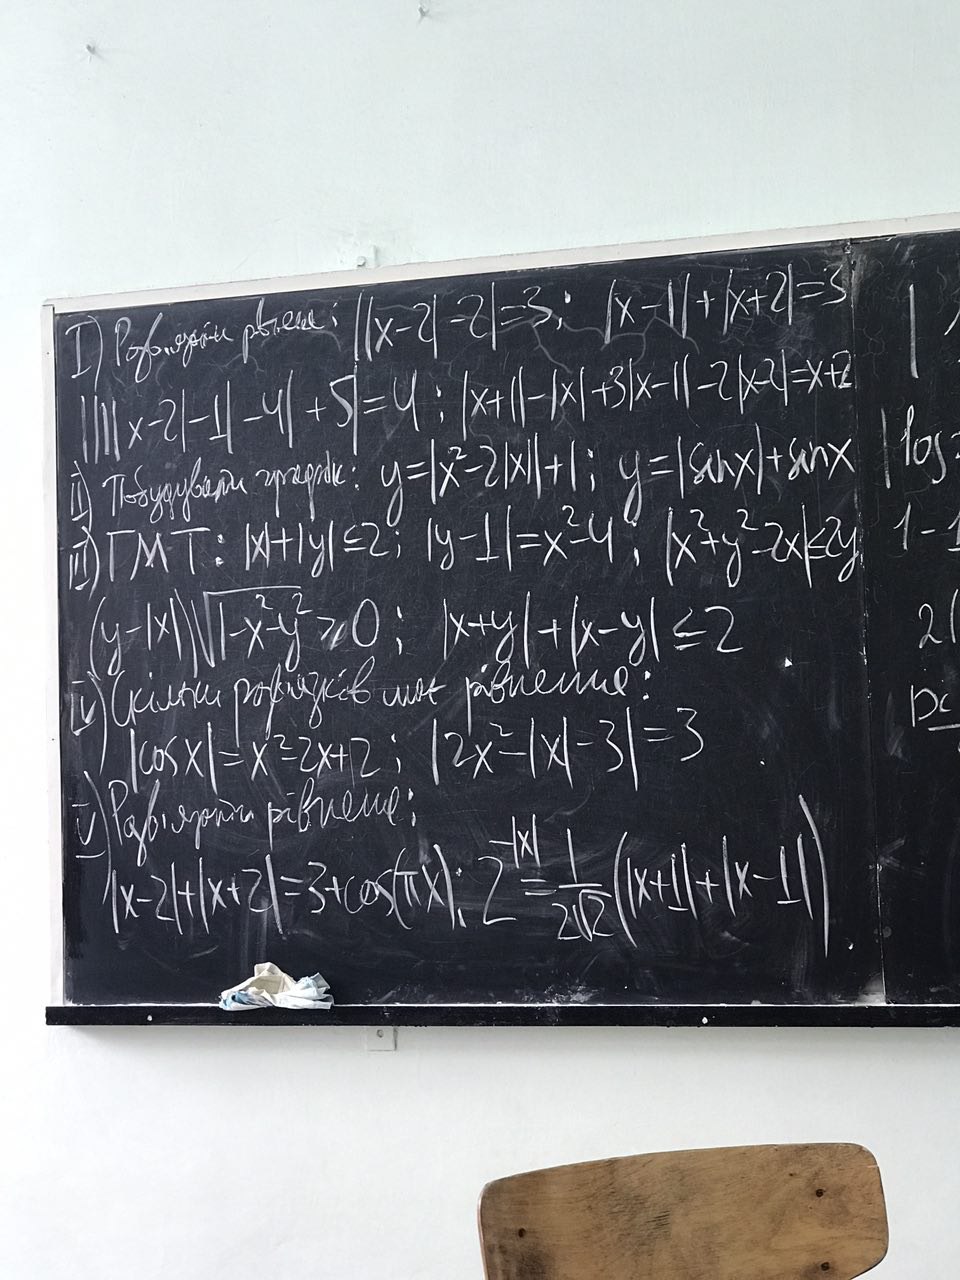 I) Розв'язати рівнян: ||x-2|-2|=3; |x-1|+|x+2|=3
||||x-2|-1|-4|+5|=4; |x+1|-|x|+3|x-1|-2|x-2|=x+2
II) Побудувати графік: y=|x²-2|x||+1; y=|sinx|+sinx
III) ГМТ: |x|+|y|≤2; |y-1|=x²-4; |x²+y²-2x|≤2y
(y-|x|)√1-x²-y² ≥0; |x+y|+|x-y|≤2
IV) Скільки розв'язків має рівнення:
|cosx|=x²-2x+2; |2x²-|x|-3|=3
V) Розв'язати рівнення:
|x-2|+|x+2|=3+cos(πx); 2^{-|x|}=1/(2√2)(|x+1|+|x-1|)
|log
1-1
2(